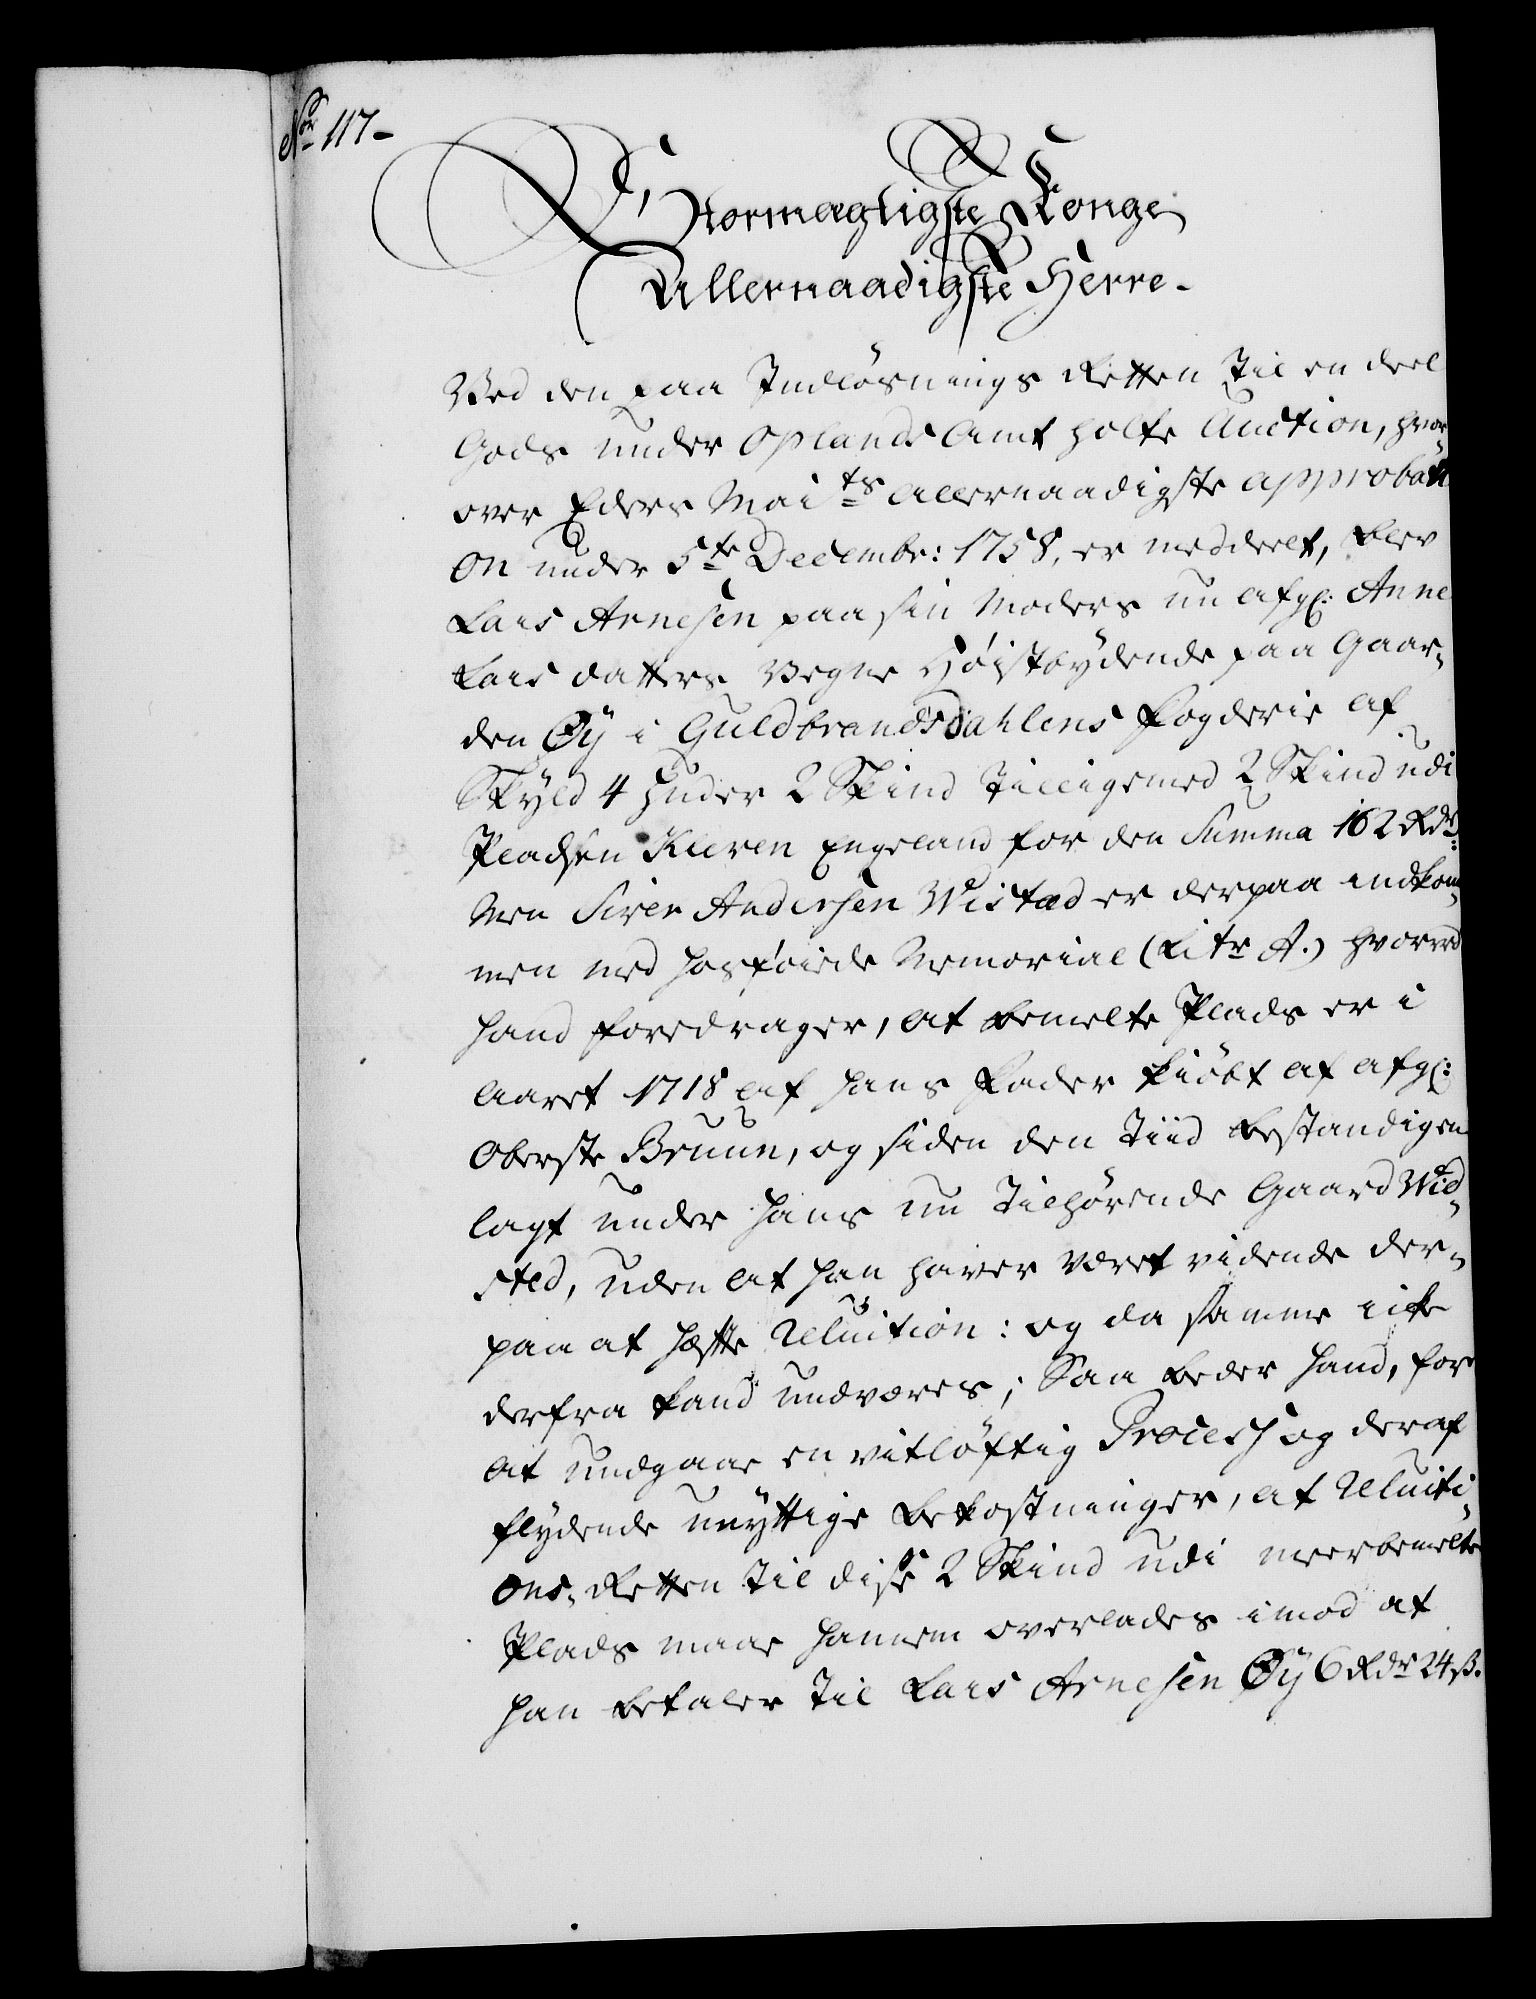 No 117-
Stormægtigste Konge
Allernaadigste Herre.
Ved den paa Indløsnings Retten til en deel
Gods under Oplands Amt holte Auction, hvor
over Eders Maits allernaadigste approbati
on under 5te Decembr: 1758, er meddeelt, blev
Lars Arnesen paa sin Moders nu afg: Anne
Lars datters Vegne Høistbydende paa Gaar-
den Øy i Guldbrandsdahlens Fogderie af
Skyld 4 Huder 2 Skind tilligemed 2 Skind udi
Pladsen Kleven Engeland for den Summa 162 Rdr
Men Siver Andersen Wistad er derpaa indkom-
men med hosføiede Memorial (Litr A.) hvormed
hand foredrager, at bemelte Plads er i
Aaret 1718 af hans Fader kiøbt af afg:
Oberste Bruun, og siden den Tiid bestandigen
lagt under hans nu tilhørende Gaard Wid-
sted, uden at han haver været vidende der-
paa at hæfte Reluition: og da samme icke
derfra kand undværes; Saa beder hand, for
at undgaae en vitløftig Process og deraf
flydende unyttige bekostninger, at Reluiti-
ons-Retten til disse 2 Skind udi meerbemelte
Plads maae hannem overlades imod at
han betaler til Lars Arnesen Øy 6 Rdr 24 ß.